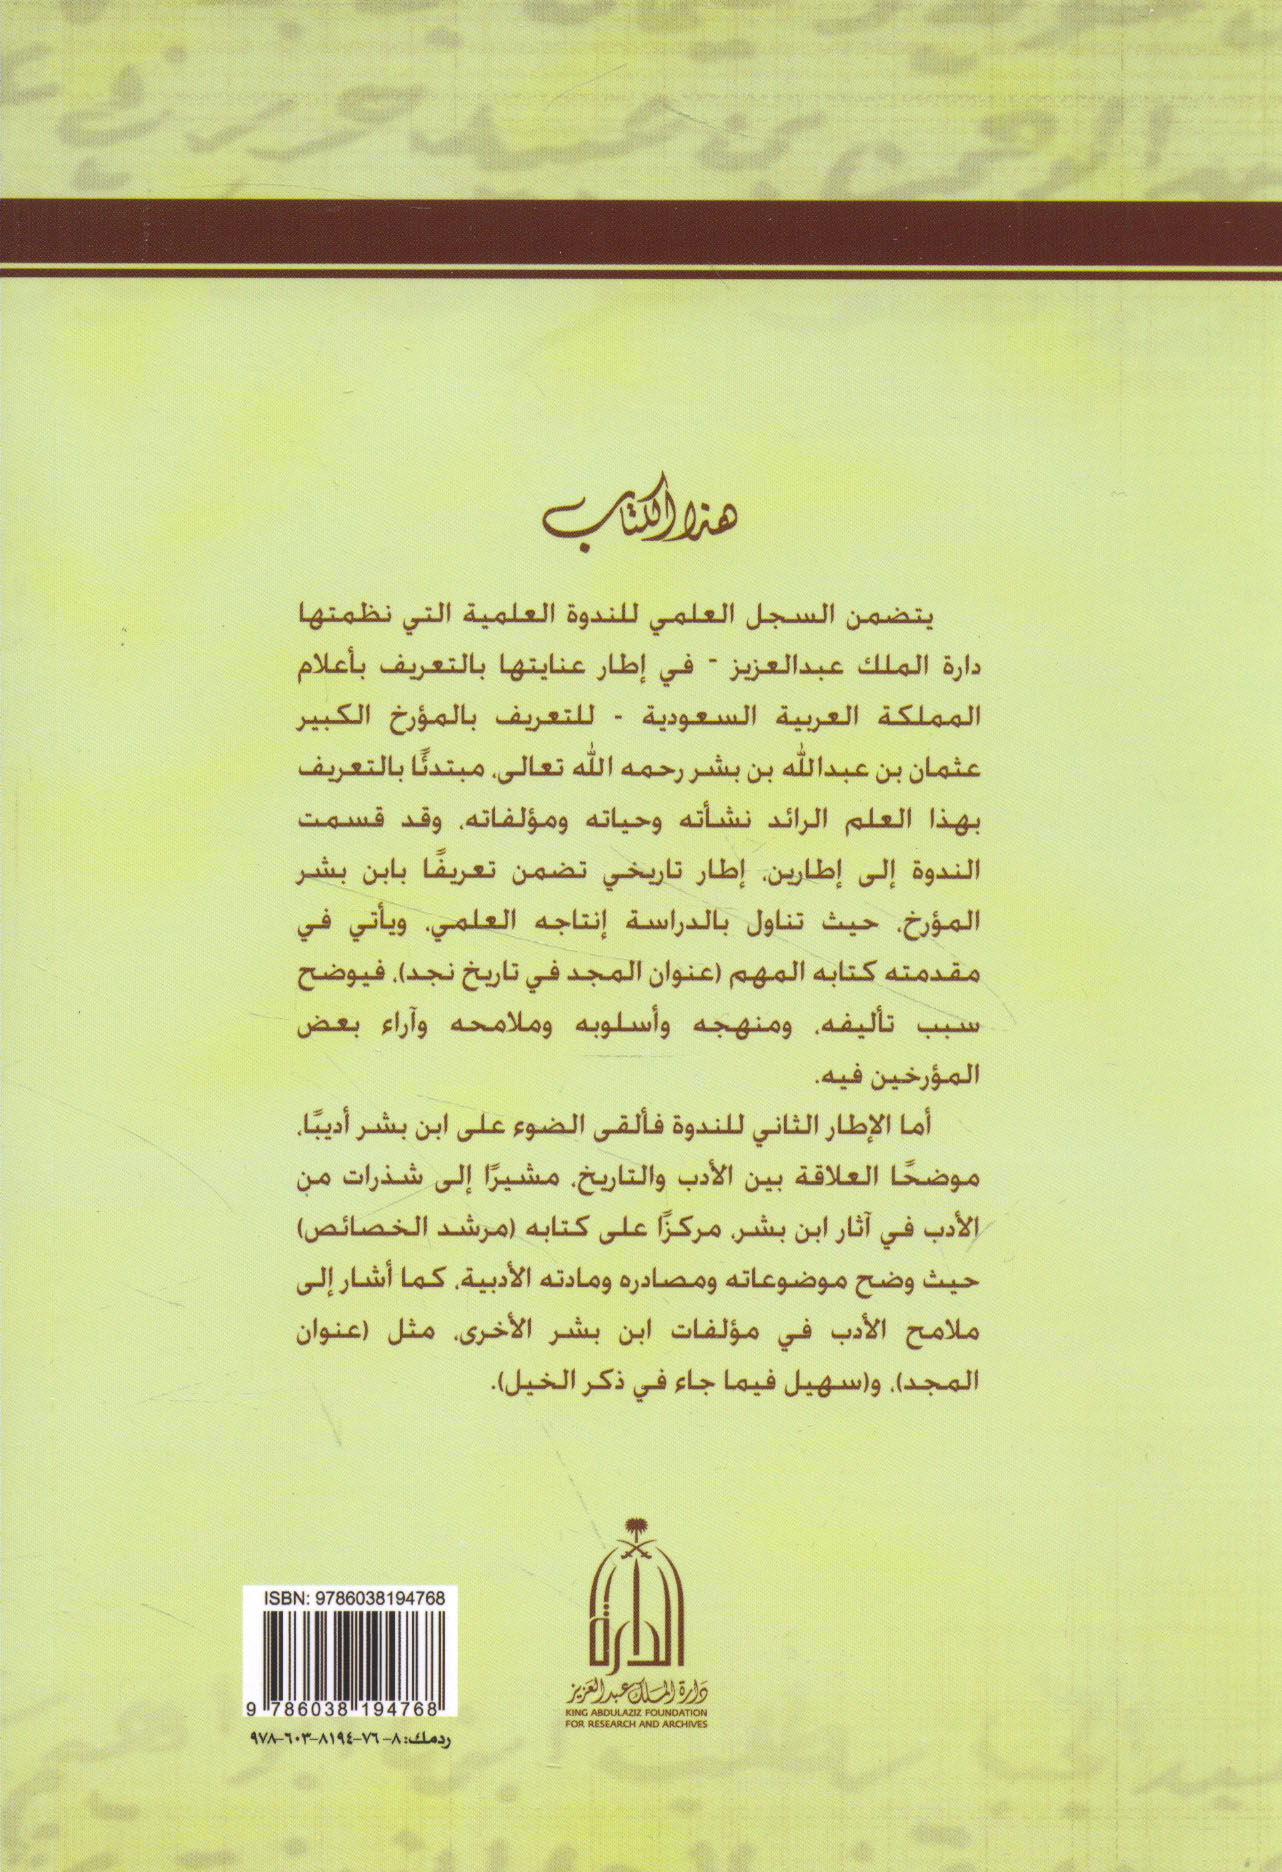 هذا الكتاب
يتضمن السجل العلمي للندوة العلمية التي نظمتها
دارة الملك عبدالعزيز - في إطار عنايتها بالتعريف بأعلام
المملكة العربية السعودية - للتعريف بالمؤرخ الكبير
عثمان بن عبدالله بن بشر رحمه الله تعالى، مبتدئًا بالتعريف
بهذا العلم الرائد نشأته وحياته ومؤلفاته، وقد قسمت
الندوة إلى إطارين، إطار تاريخي تضمن تعريفًا بابن بشر
المؤرخ، حيث تناول بالدراسة إنتاجه العلمي، ويأتي في
مقدمته كتابه المهم (عنوان المجد في تاريخ نجد)، فيوضح
سبب تأليفه، ومنهجه وأسلوبه وملامحه وآراء بعض
المؤرخين فيه.
أما الإطار الثاني للندوة فألقى الضوء على ابن بشر أديبًا،
موضحًا العلاقة بين الأدب والتاريخ، مشيرًا إلى شذرات من
الأدب في آثار ابن بشر، مركزًا على كتابه (مرشد الخصائص)
حيث وضح موضوعاته ومصادره ومادته الأدبية، كما أشار إلى
ملامح الأدب في مؤلفات ابن بشر الأخرى، مثل (عنوان
المجد)، و(سهيل فيما جاء في ذكر الخيل).
الدارة
دارة الملك عبد العزيز
KING ABDULAZIZ FOUNDATION
FOR RESEARCH AND ARCHIVES
ISBN: 9786038194768
9 786038 194768
ردمك: ٨-٧٦-٨١٩٤-٦٠٣-٩٧٨